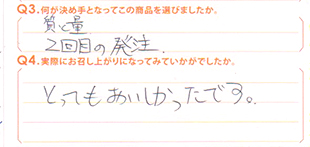 Q3.何が決め手となってこの商品を選びましたか。
質と量
2回目の発注.
Q4.実際にお召し上がりになってみていかがでしたか。
とってもおいしかったです。